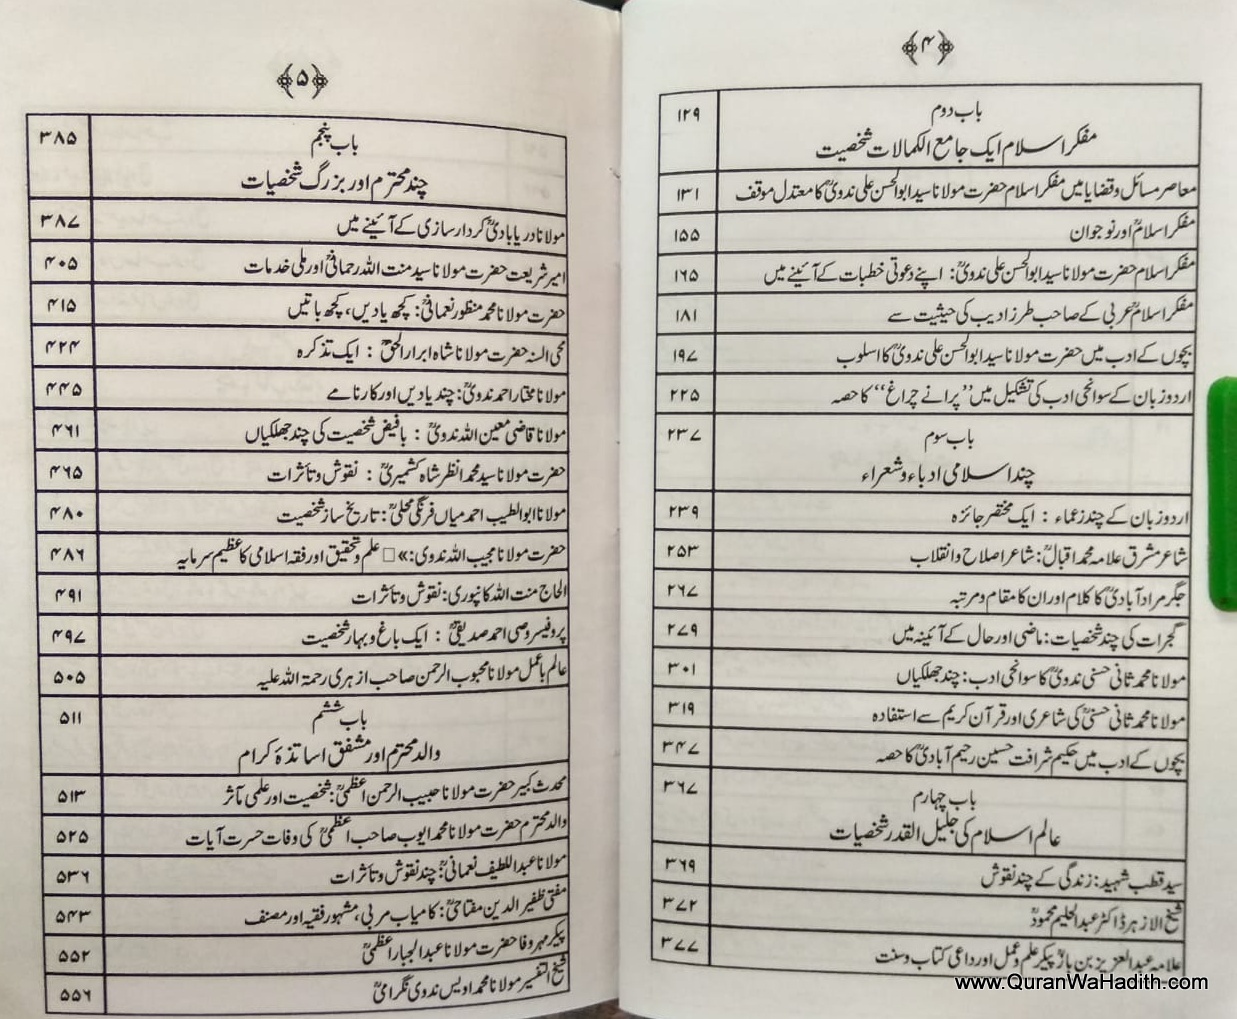 ﴿۴﴾
باب دوم ۱۲۹
مفکر اسلام ایک جامع الکمالات شخصیت
معاصر مسائل و قضایا میں مفکر اسلام حضرت مولانا سید ابوالحسن علی ندویؒ کا معتدل موقف ۱۳۱
مفکر اسلامؒ اور نوجوان ۱۵۵
مفکر اسلام حضرت مولانا سید ابوالحسن علی ندویؒ: اپنے دعوتی خطبات کے آئینے میں ۱۶۵
مفکر اسلامؒ عربی کے صاحب طرز ادیب کی حیثیت سے ۱۸۱
بچوں کے ادب میں حضرت مولانا سید ابوالحسن علی ندویؒ کا اسلوب ۱۹۷
اردو زبان کے سوانحی ادب کی تشکیل میں ”پرانے چراغ“ کا حصہ ۲۲۵
باب سوم ۲۳۷
چند اسلامی ادباء و شعراء
اردو زبان کے چند زعماء : ایک مختصر جائزہ ۲۳۹
شاعر مشرق علامہ محمد اقبالؒ: شاعر اصلاح و انقلاب ۲۵۳
جگر مرادآبادیؒ کا کلام اور ان کا مقام و مرتبہ ۲۶۷
گجرات کی چند شخصیات: ماضی اور حال کے آئینہ میں ۲۷۹
مولانا محمد ثانی حسنی ندویؒ کا سوانحی ادب: چند جھلکیاں ۳۰۱
مولانا محمد ثانی حسنیؒ کی شاعری اور قرآن کریم سے استفادہ ۳۱۹
بچوں کے ادب میں حکیم شرافت حسین رحیم آبادیؒ کا حصہ ۳۴۷
باب چہارم ۳۶۷
عالم اسلام کی جلیل القدر شخصیات
سید قطب شہید: زندگی کے چند نقوش ۳۶۹
شیخ الازہر ڈاکٹر عبدالحلیم محمودؒ ۳۷۲
علامہ عبدالعزیز بن بازؒ پیکر علم و عمل اور داعی کتاب و سنت ۳۷۷
﴿۵﴾
باب پنجم ۳۸۵
چند محترم اور بزرگ شخصیات
مولانا دریابادیؒ کردار سازی کے آئینے میں ۳۸۷
امیر شریعت حضرت مولانا سید منت اللہ رحمانیؒ اور ملی خدمات ۴۰۵
حضرت مولانا محمد منظور نعمانیؒ: کچھ یادیں، کچھ باتیں ۴۱۵
محی السنہ حضرت مولانا شاہ ابرار الحقؒ : ایک تذکرہ ۴۲۴
مولانا مختار احمد ندویؒ: چند یادیں اور کارنامے ۴۴۵
مولانا قاضی معین اللہ ندویؒ : بافیض شخصیت کی چند جھلکیاں ۴۶۱
حضرت مولانا سید محمد انظر شاہ کشمیریؒ : نقوش و تأثرات ۴۶۵
مولانا ابوالطیب احمد میاں فرنگی محلیؒ: تاریخ ساز شخصیت ۴۸۰
حضرت مولانا مجیب اللہ ندوی:»□ علم و تحقیق اور فقہ اسلامی کا عظیم سرمایہ ۴۸۶
الحاج منت اللہ کانپوری: نقوش و تأثرات ۴۹۱
پروفیسر وصی احمد صدیقیؒ : ایک باغ و بہار شخصیت ۴۹۷
عالم باعمل مولانا محبوب الرحمن صاحب ازہری رحمۃ اللہ علیہ ۵۰۵
باب ششم ۵۱۱
والد محترم اور مشفق اساتذۂ کرام
محدث کبیر حضرت مولانا حبیب الرحمن اعظمیؒ: شخصیت اور علمی مآثر ۵۱۳
والد محترم حضرت مولانا محمد ایوب صاحب اعظمیؒ کی وفات حسرت آیات ۵۲۵
مولانا عبداللطیف نعمانیؒ: چند نقوش و تأثرات ۵۳۶
مفتی ظفیر الدین مفتاحیؒ: کامیاب مربی، مشہور فقیہ اور مصنف ۵۴۳
پیکر مہر و وفا حضرت مولانا عبدالجبار اعظمیؒ ۵۵۲
شیخ التفسیر مولانا محمد اویس ندوی نگرامیؒ ۵۵۶
www.QuranWaHadith.com